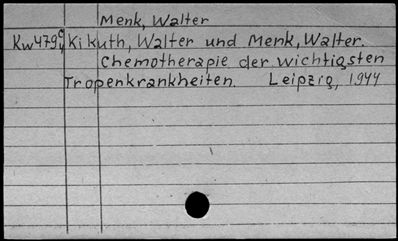 Menk, Walter
Kw479c Kikuth, Walter und Menk, Walter.
Chemotherapie der wichtigsten
Tropenkrankheiten. Leipzig, 1944